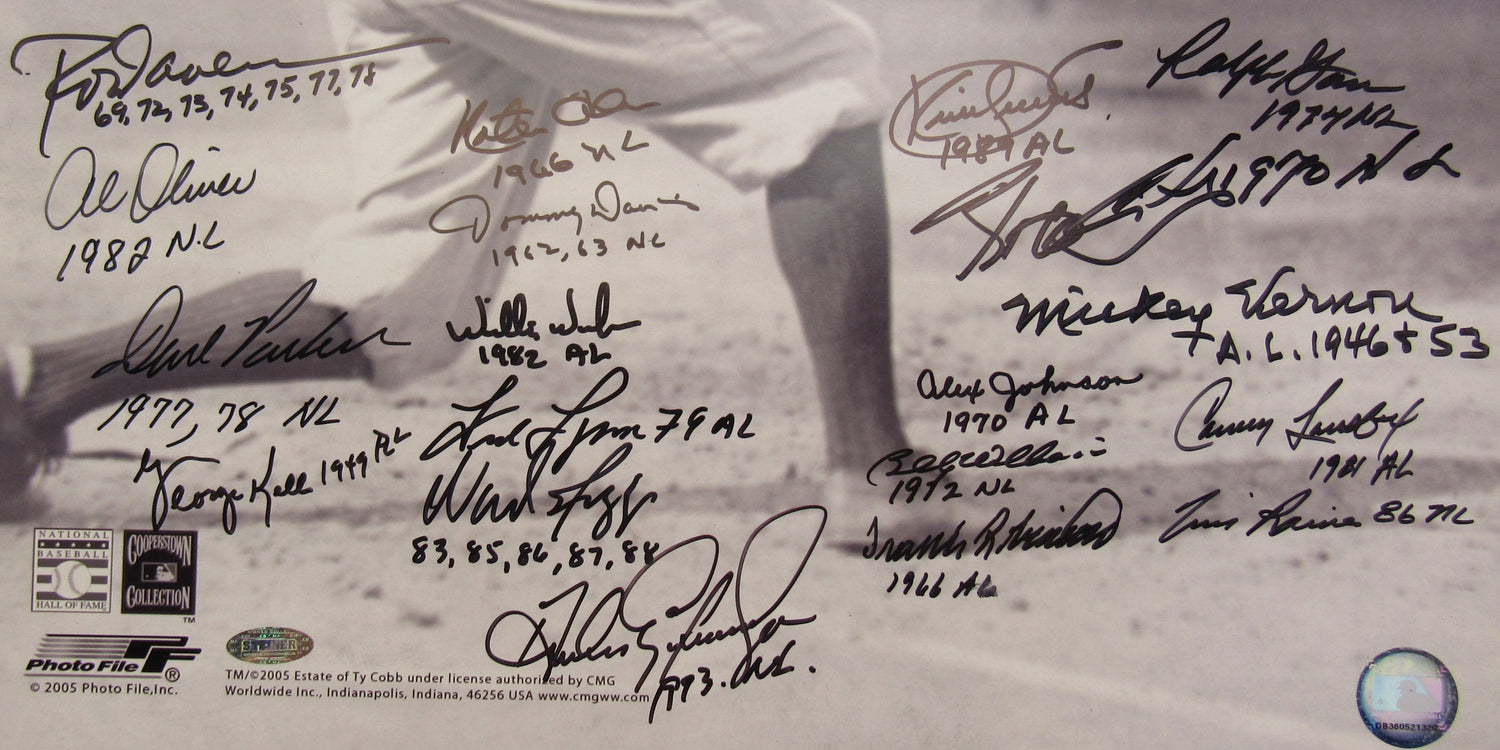 Rod Carew
69, 72, 73, 74, 75, 77, 78
Al Oliver
1982 N.L
Dave Parker
1977, 78 NL
George Kell 1949 AL
1966 NL
Tommy Davis
1962, 63 NL
Willie Wilson
1982 AL
Fred Lynn 79 AL
Wade Boggs
83, 85, 86, 87, 88
1993. NL.
1989 AL
Ralph Garr
1974 NL
1970 N L
Mickey Vernon
A.L. 1946 + 53
Alex Johnson
1970 AL
Carney Lansford
1981 AL
Billy Williams
1972 NL
Frank Robinson
1966 AL
Tim Raines 86 NL
NATIONAL
BASEBALL
HALL OF FAME
COOPERSTOWN
COLLECTION
TM
Photo File PF ®
© 2005 Photo File, Inc.
STEINER
TM/©2005 Estate of Ty Cobb under license authorized by CMG
Worldwide Inc., Indianapolis, Indiana, 46256 USA www.cmgww.com